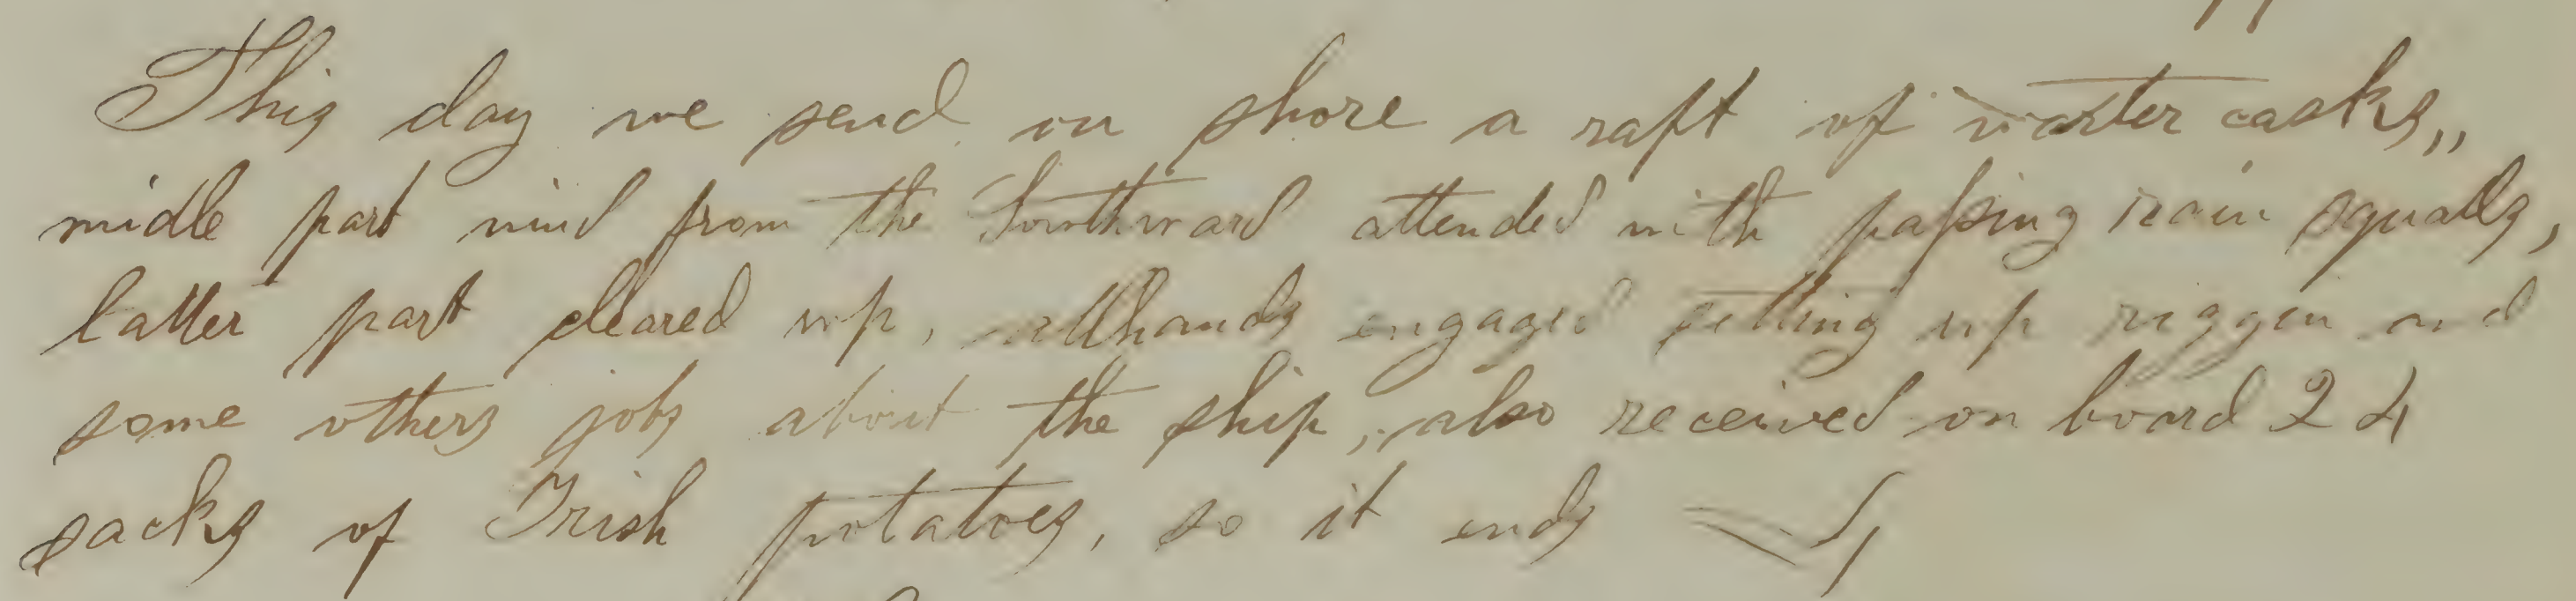 This day we send on shore a raft of warter casks,,
midle part wind from the Southward attended with passing rain squalls,
latter part cleared up, allhands engaged setting up riggin and
some others jobs about the ship, also received on board 24
sacks of Irish potatoes, so it ends